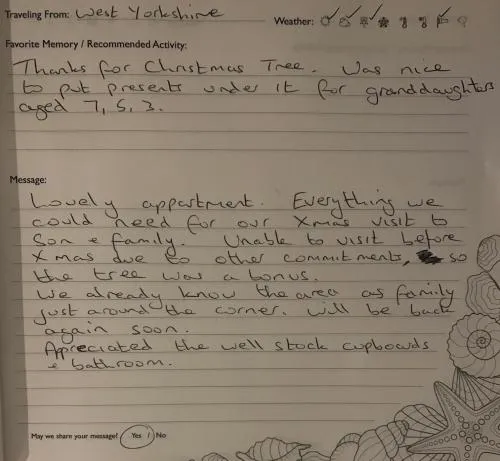 Traveling From: West Yorkshire
Weather:
Favorite Memory / Recommended Activity:
Thanks for Christmas Tree. Was nice
to put presents under it for granddaughters
aged 7, 5, 3.
Message:
Lovely appartment. Everything we
could need for our Xmas visit to
Son & family. Unable to visit before
Xmas due to other commitments, so
the tree was a bonus.
We already know the area as family
just around the corner. Will be back
again soon.
Appreciated the well stock cupboads
& bathroom.
May we share your message? Yes / No